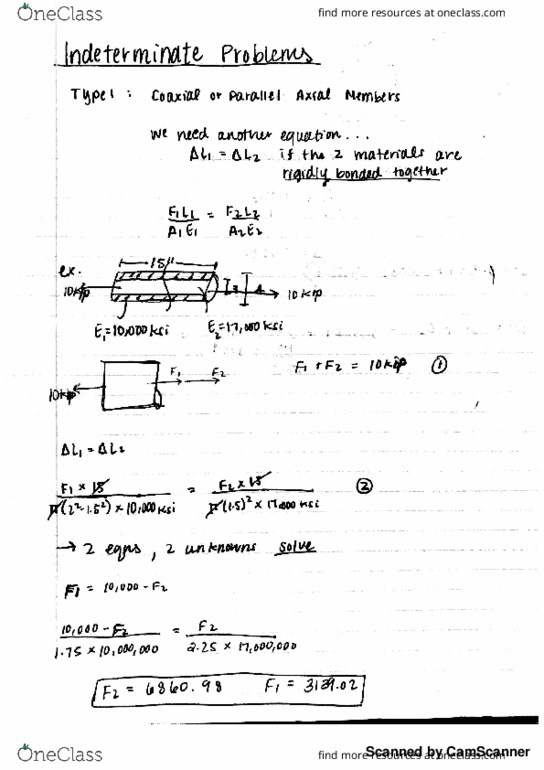 OneClass
find more resources at oneclass.com
Indeterminate Problems
Type 1 : Coaxial or Parallel Axial Members
We need another equation...
ΔL1 = ΔL2 if the 2 materials are
rigidly bonded together
F1L1 = F2L2
A1E1 A2E2
ex.
15"
10kip
3 4
10kip
E1=10,000ksi E2=17,000ksi
F1 F2
F1 + F2 = 10kip ①
10kip
ΔL1 = ΔL2
F1 × 15 = F2 × 15 ②
π(2²-1.5²) × 10,000ksi π(1.5)² × 17,000 ksi
→ 2 eqns, 2 unknowns solve
F1 = 10,000 - F2
10,000 - F2 = F2
1.75 × 10,000,000 2.25 × 17,000,000
F2 = 6860.98 F1 = 3139.02
OneClass
find more resources at oneclass.com
Scanned by CamScanner